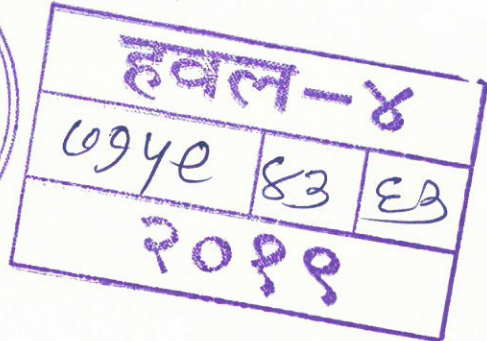 हवल-४
७१५९ ४३ ६३
२०१९